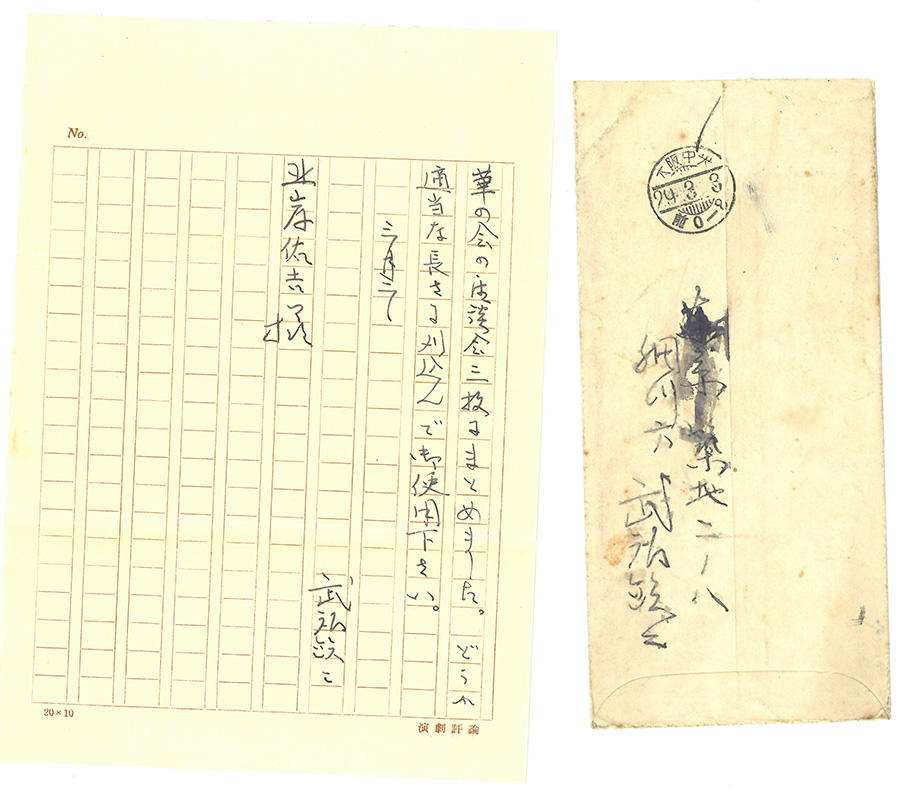 No.
華の会の座談会三枚にまとめました。どうか
適当な長さに刈込んで御使用下さい。
三月三日
武智鉄二
北岸佑吉様
20×10
演劇評論
大阪中央
29.3.3
前0-8
東京築地二ノ八
細川方 武智鉄二